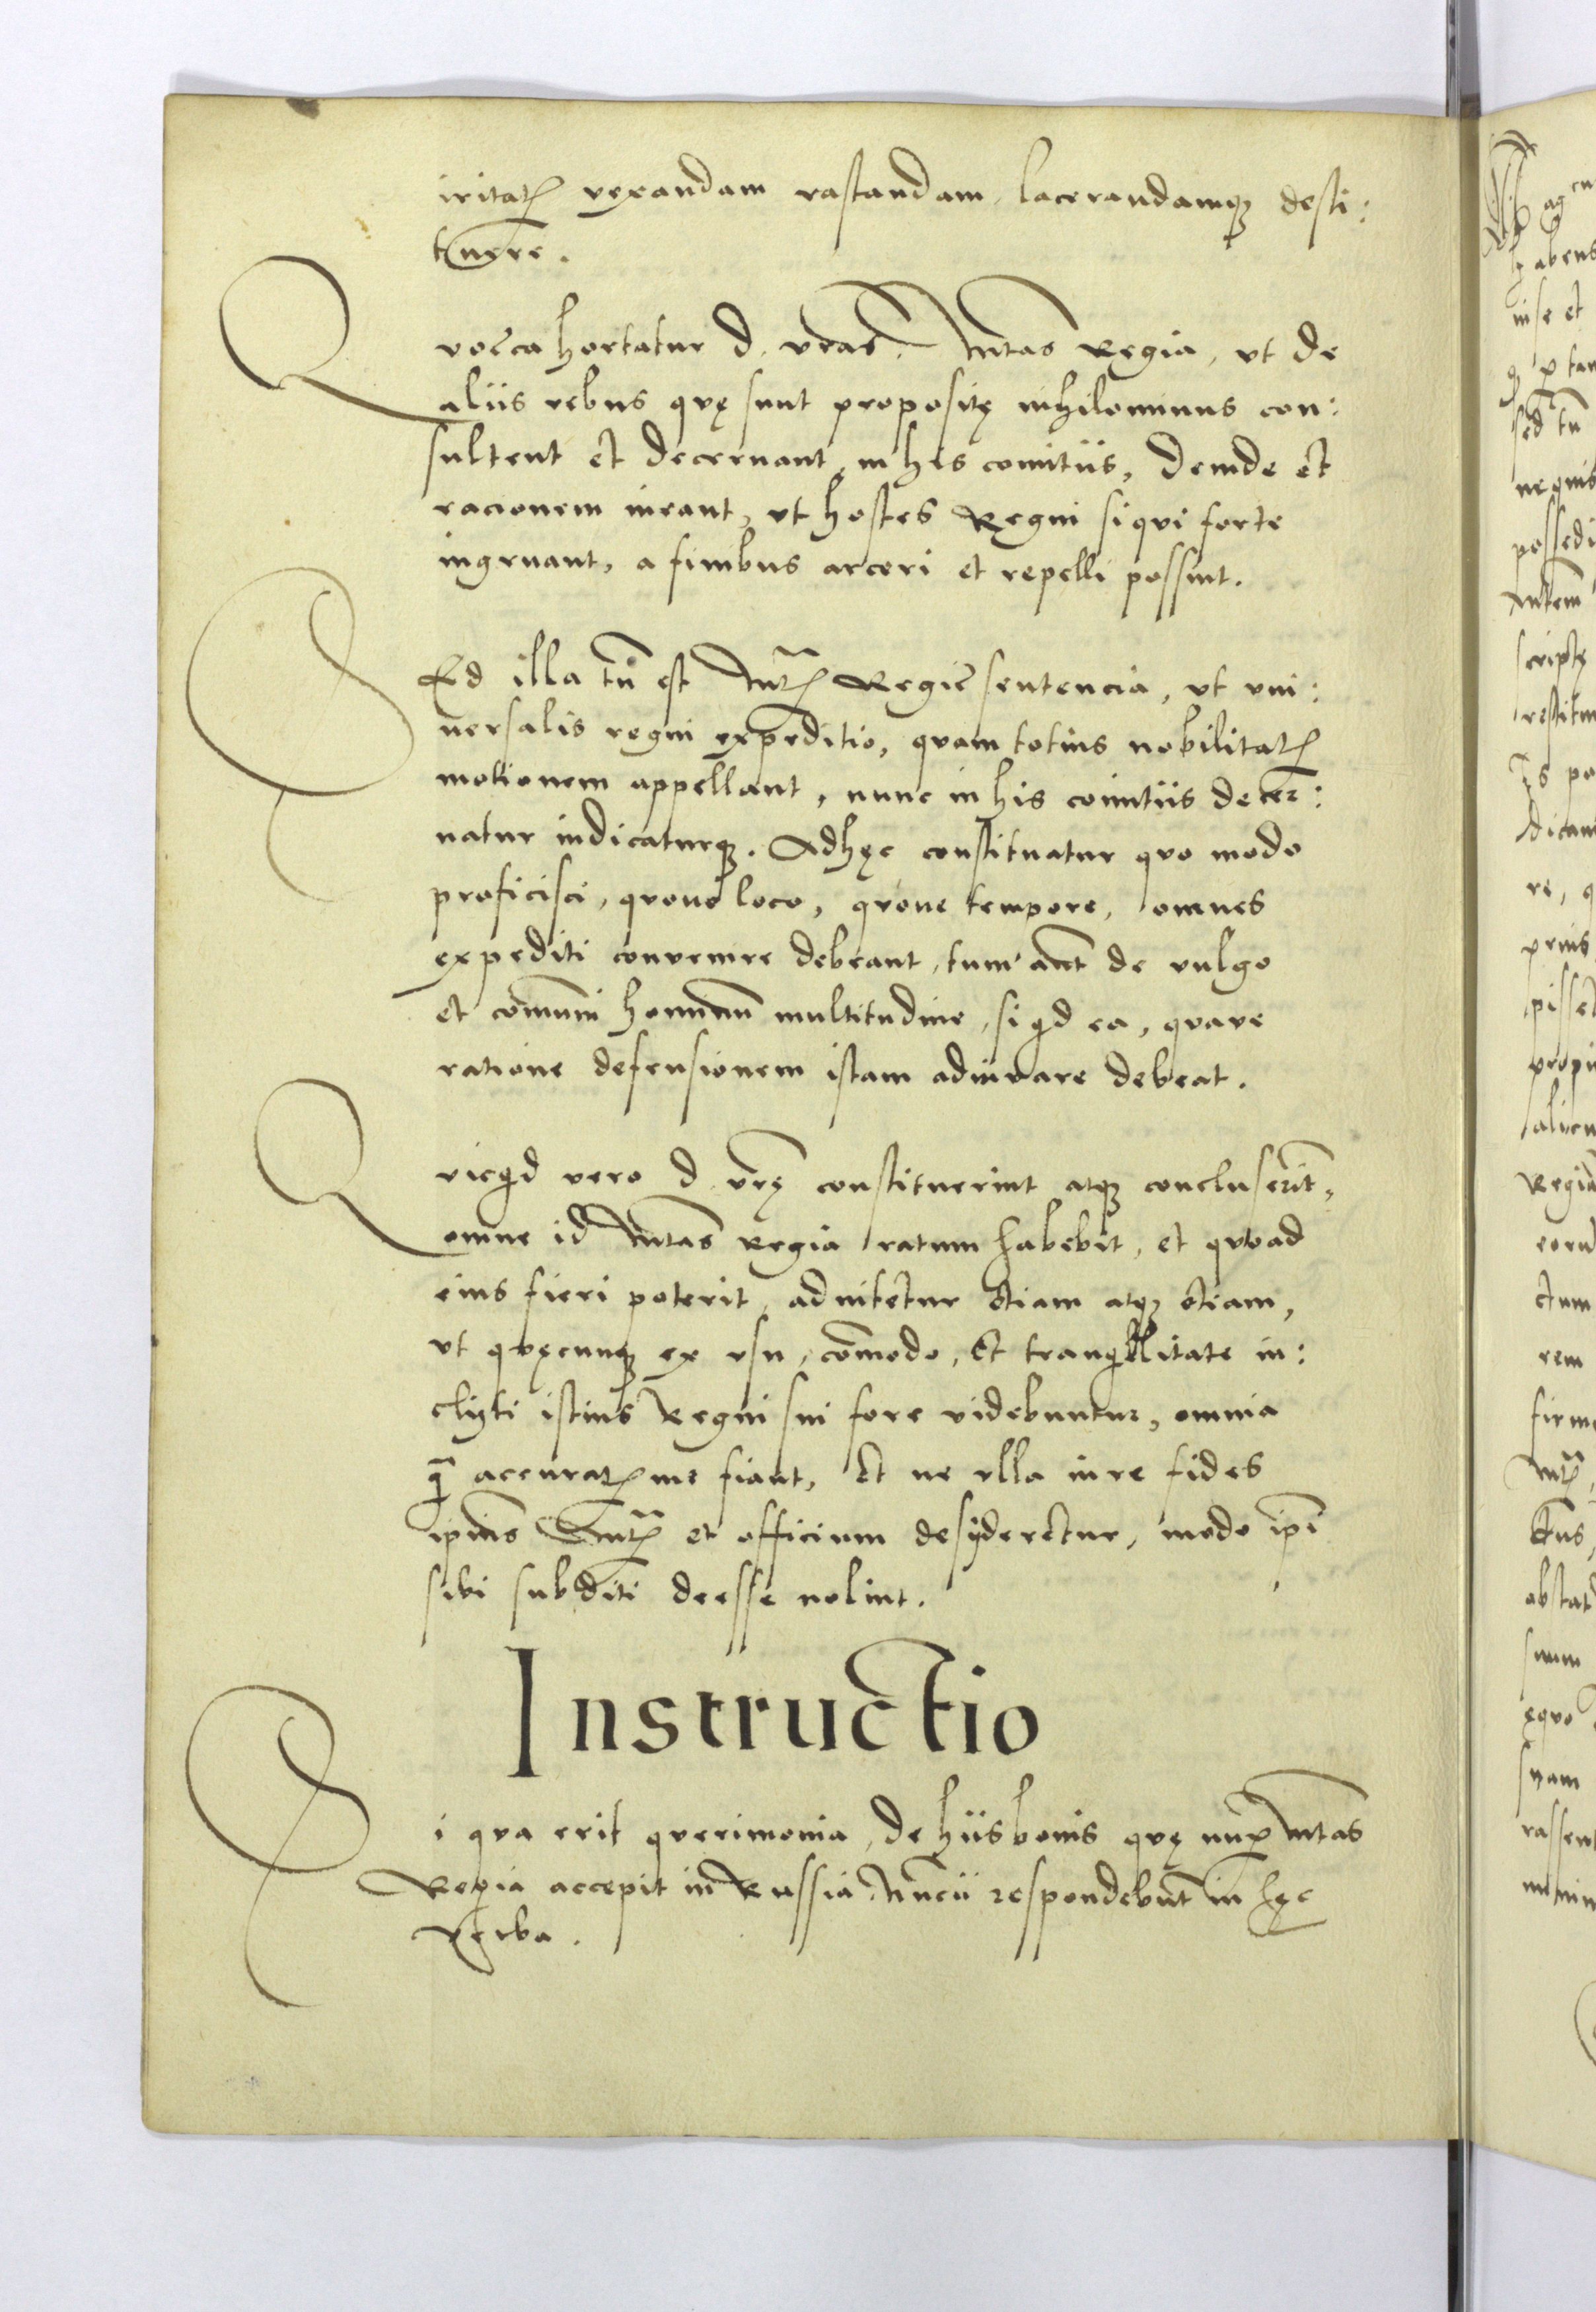 iritatꝫ vexandam vastandam, lacerandamqꝫ desti:
tuere.
Quocca hortatur d. vras. Mtas Regia, vt de
aliis rebus quę sunt propositę nihilominus con:
sultent et decernant, in his comitiis, deinde et
racionem ineant, vt hostes Regni si qui forte
ingruant, a finibus arceri et repelli possint.
SEd illa tn̄ est Mtꝫ Regię sentencia, vt vni:
uersalis regni expeditio, quam totius nobilitatꝫ
motionem appellant, nunc in his comitiis decer:
natur indicaturqꝫ. Adhęc constituatur quo modo
proficisci, quoue loco, quoue tempore, omnes
expediti convenire debeant, tum aūt de vulgo
et com̄uni hominū multitudine, si qd ea, quave
ratione defensionem istam adiuvare debeat.
Quicqd vero d. vrę constituerint atqꝫ concluserīt,
omne id Mtas Regia ratum habebit, et quoad
eius fieri poterit, adnitetur etiam atqꝫ etiam,
vt quęcunqꝫ ex vsu, cōmodo, Et tranqllitate in:
clyti istius Regni sui fore videbuntur, omnia
q̄ accuratꝫme fiant, Et ne vlla in re fides
ipius Mtꝫ et officium desyderetur, modo ipi
sibi subditi deesse nolint.
Instructio
Si qua erit querimonia, de hiis bonis quę nuꝑ Mtas
Regia accepit in Russia Nuncii respondebūt in hęc
verba.